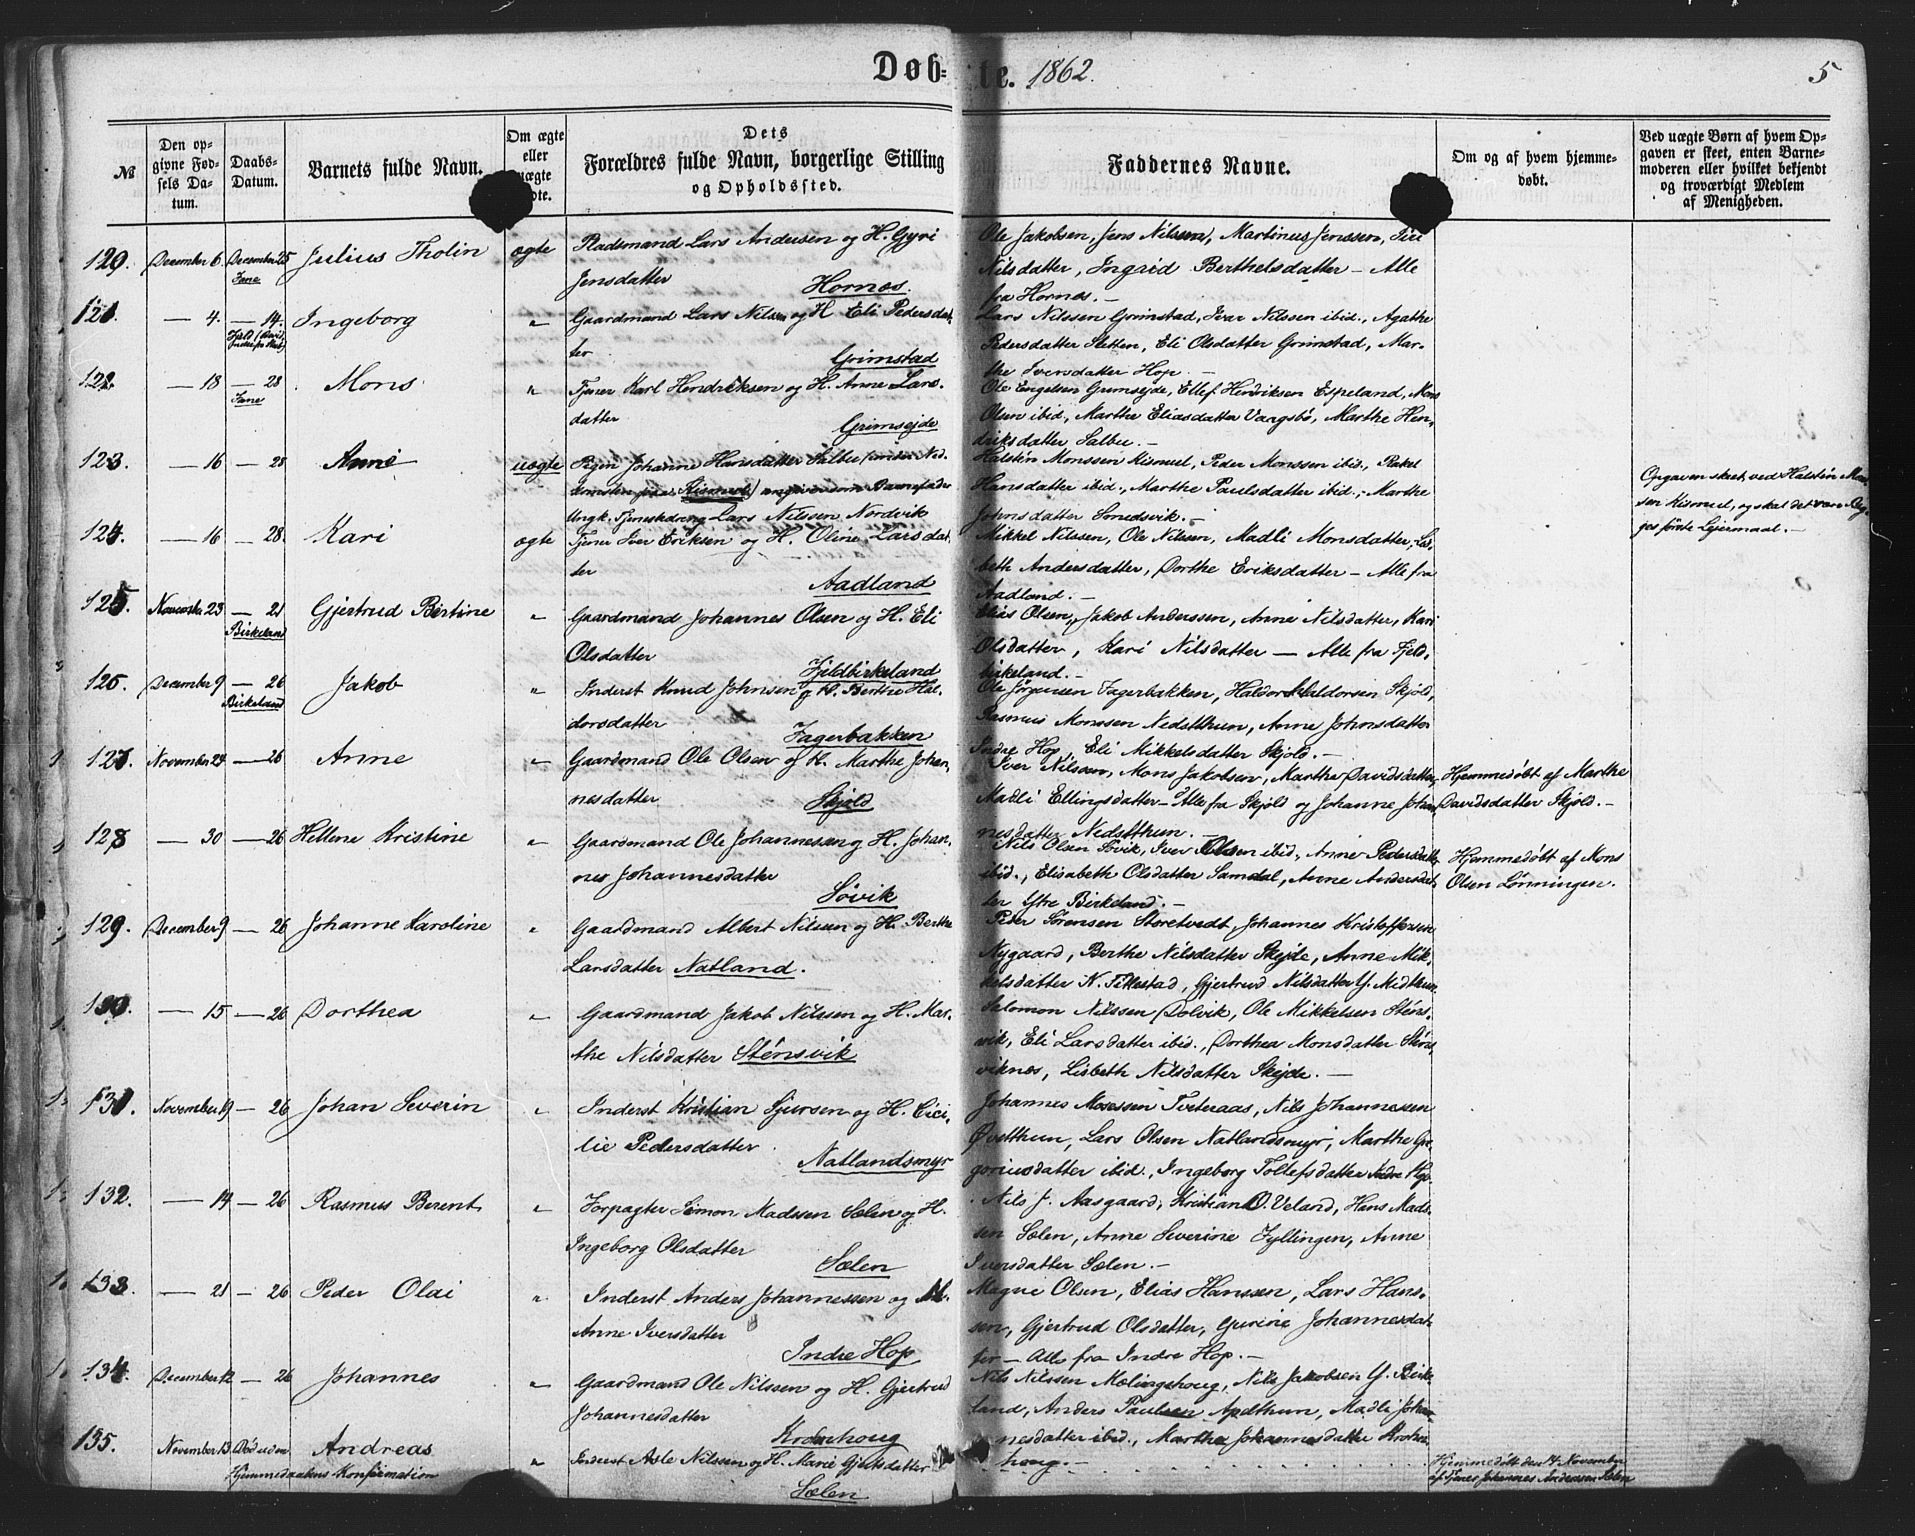 Døb-
te. 1862.
5
№
Den op-
givne Fød-
sels Da-
tum.
Daabs-
Datum.
Barnets fulde Navn.
Om ægte
eller
uægte
Dets
Forældres fulde Navn, borgerlige Stilling
og Opholdssted.
Faddernes Navne.
Om og af hvem hjemme-
døbt.
Ved uægte Børn af hvem Op-
gaven er skeet, enten Barne-
moderen eller hvilket bekjendt
og troværdigt Medlem
af Menigheden.
120. December 6. December 25 Julius Tholin ægte
Fane
Lars Andersen og H. Gyri
Jensdatter Hornæs.
Ole Jakobsen, Jens Nilsen, Martinus Jenssen, Siri
Nilsdatter, Ingrid Berthelsdatter – Alle
fra Hornes. –
121. — 4. — 14. Ingeborg "
Gaardmand Lars Nilssen og H. Eli Pedersdat-
ter Grimstad
Lars Nilssen Grimstad, Ivar Nilssen ibid., Agathe
Pedersdatter Sletten, Eli Olsdatter Grimstad, Mar-
the Iversdatter Hop. –
122. — 18 — 28 Mons "
Fane
Tjener Karl Hendriksen og H. Anne Lars-
datter Grimsejde
Ole Engelsen Grimsejde, Ellef Hendriksen Espeland, Mons
Olsen ibid, Marthe Eliasdatter Vargsbø, Marthe Hen-
driksdatter Salbu. –
123. — 16 — 28 Anne uægte
Pigen Johanne Hansdatter Salbu
Kismul) angiver som Barnefader
Ungk. Lars Nilssen Nordvik
Halstén Monssen Kismul, Peder Monssen ibid., Rakel
Hansdatter ibid., Marthe Paulsdatter ibid., Marthe
Johnsdatter Smedsvik. –
Opgaven skeet ved Halstén Mons-
sen Kismul, og skal det være Beg-
ges første Lejermaal. –
124. — 16 — 28. Kari ægte
Tjener Iver Eriksen og H. Oline Larsdat-
ter Aadland
Mikkel Nilssen, Ole Nilssen, Madli Monsdatter, Lis-
beth Andersdatter, Dorthe Eriksdatter – Alle fra
Aadland. –
125. November 23 — 21 Gjertrud Bertine "
Birkeland
Gaardmand Johannes Olsen og H. Eli
Olsdatter Fjeldbirkeland
Elias Olsen, Jakob Anderssen, Anne Nilsdatter, Kari
Olsdatter, Kari Nilsdatter — Alle fra Fjeld-
birkeland. –
126. December 9 — 26 Jakob "
Birkeland
Inderst Knud Johnsen og H. Bertha Hal-
dorsdatter Fagerbakken
Ole Jørgensen Fagerbakken, Haldor Haldorsen Skjold,
Rasmus Monssen Nedstthun, Anne Johnsdatter
Indre Hop, Eli Mikkelsdatter Skjold. –
127. November 24 — 26 Anne "
Gaardmand Ole Olsen og H. Marthe Johan-
nesdatter Skjold
Iver Nilssen, Mons Jakobsen, Marthe Davidsdatter,
Madli Ellingsdatter – Alle fra Skjold og Johanne Johan-
nesdatter Nedstthun. –
Hjemmedøbt af Marthe
Davidsdatter Skjold. –
128 — 30 — 26 Hellene Kristine "
Gaardmand Ole Johannessen og H. Johan-
ne Johannesdatter
Søvik
Nils Olsen Søvik, Iver Olsen ibid., Anne Pedersdatter
ibid., Elisabeth Olsdatter Samdal, Anne Andersdat-
ter Ytre Birkeland. –
Hjemmedøbt af Mons
Olsen Lønningen.
129. December 9 — 26 Johanne Karoline "
Gaardmand Albert Nilssen og H. Berthe
Larsdatter Natland.
Peder Sørensen Storetvedt, Johannes Kristoffersen
Nygaard, Berthe Nilsdatter Skejde, Anne Mik-
kelsdatter N. Tittestad, Gjertrud Nilsdatter Y. Midthun
130. — 15 — 26 Dorthea "
Gaardmand Jakob Nilssen og H. Mar-
the Nilsdatter Sténsvik
Salomon Nilssen Dolvik, Ole Mikkelsen Sténs-
vik, Eli Larsdatter ibid., Dorthea Monsdatter Sténs-
viknes, Lisbeth Nilsdatter Skejde. –
131. November 19 — 26 Johan Severin "
Inderst Kristian Sjursen og H. Cici-
lie Pedersdatter.
Natlandsmyr
Johannes Mosessen Tveteraas, Nils Johannessen
Øvstthun, Lars Olsen Natlandsmyr, Marthe Gre-
goriusdatter ibid., Ingeborg Tollefsdatter Indre Hop.
132. — 14 — 26 Rasmus Berent "
Forpagter Simon Madssen Sælen og H.
Ingeborg Olsdatter
Sælen
Nils J. Aasgaard, Kristian O. Veland, Hans Mads-
sen Sælen, Anne Severine Fyllingen, Anne
Iversdatter Sælen. –
133. — 21 — 26 Peder Olai "
Inderst Anders Johannessen og H.
Anne Iversdatter
Indre Hop
Magne Olsen, Elias Hanssen, Lars Hans-
sen, Gjertrud Olsdatter, Gurine Johannesdat-
ter – Alle fra Indre Hop. –
134. December 12 — 26 Johannes "
Gaardmand Ole Nilssen og H. Gjertrud
Johannesdatter
Krohnhoug
Nils Nilssen Mælingshoug, Nils Jakobsen Y. Birke-
land, Anders Paulsen Apelthun, Madli Johan-
nesdatter ibid., Marthe Johannesdatter Krohn-
houg. –
135. November 13. Død uden Andreas "
Hjemmedaabens Konfirmation
Inderst Asle Nilssen og H. Marie Gjertsdatter
Sælen
Hjemmedøbt den 14 November
af Tjener Johannes Andersen Sælen